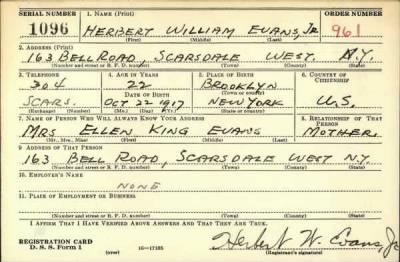 SERIAL NUMBER 1. NAME (Print) ORDER NUMBER
1096 HERBERT WILLIAM EVANS, JR 961
(First) (Middle) (Last)
2. ADDRESS (Print)
163 BELL ROAD, SCARSDALE WEST. N.Y.
(Number and street or R. F. D. number) (Town) (County) (State)
3. TELEPHONE 4. AGE IN YEARS 5. PLACE OF BIRTH 6. COUNTRY OF CITIZENSHIP
304 22 BROOKLYN
DATE OF BIRTH (Town or county)
SCARS. OCT 22 1917 NEW YORK U.S.
(Exchange) (Number) (Mo.) (Day) (Yr.) (State or country)
7. NAME OF PERSON WHO WILL ALWAYS KNOW YOUR ADDRESS 8. RELATIONSHIP OF THAT PERSON
MRS. ELLEN KING EVANS MOTHER.
(Mr., Mrs., Miss) (First) (Middle) (Last)
9. ADDRESS OF THAT PERSON
163 BELL ROAD, SCARSDALE WEST N.Y.
(Number and street or R. F. D. number) (Town) (County) (State)
10. EMPLOYER'S NAME
NONE
11. PLACE OF EMPLOYMENT OR BUSINESS
(Number and street or R. F. D. number) (Town) (County) (State)
I AFFIRM THAT I HAVE VERIFIED ABOVE ANSWERS AND THAT THEY ARE TRUE.
REGISTRATION CARD
D. S. S. Form 1 (over) 16—17105 Herbert W. Evans, Jr
(Registrant's signature)